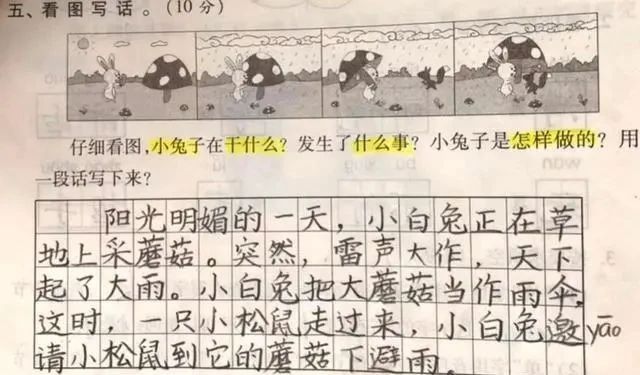 五、看图写话。(10分)
仔细看图,小兔子在干什么?发生了什么事?小兔子是怎样做的?用
一段话写下来?
阳光明媚的一天,小白兔正在草
地上采蘑菇。突然,雷声大作,天下
起了大雨。小白兔把大蘑菇当作雨伞,
这时,一只小松鼠走过来,小白兔邀yāo
请小松鼠到它的蘑菇下避雨。